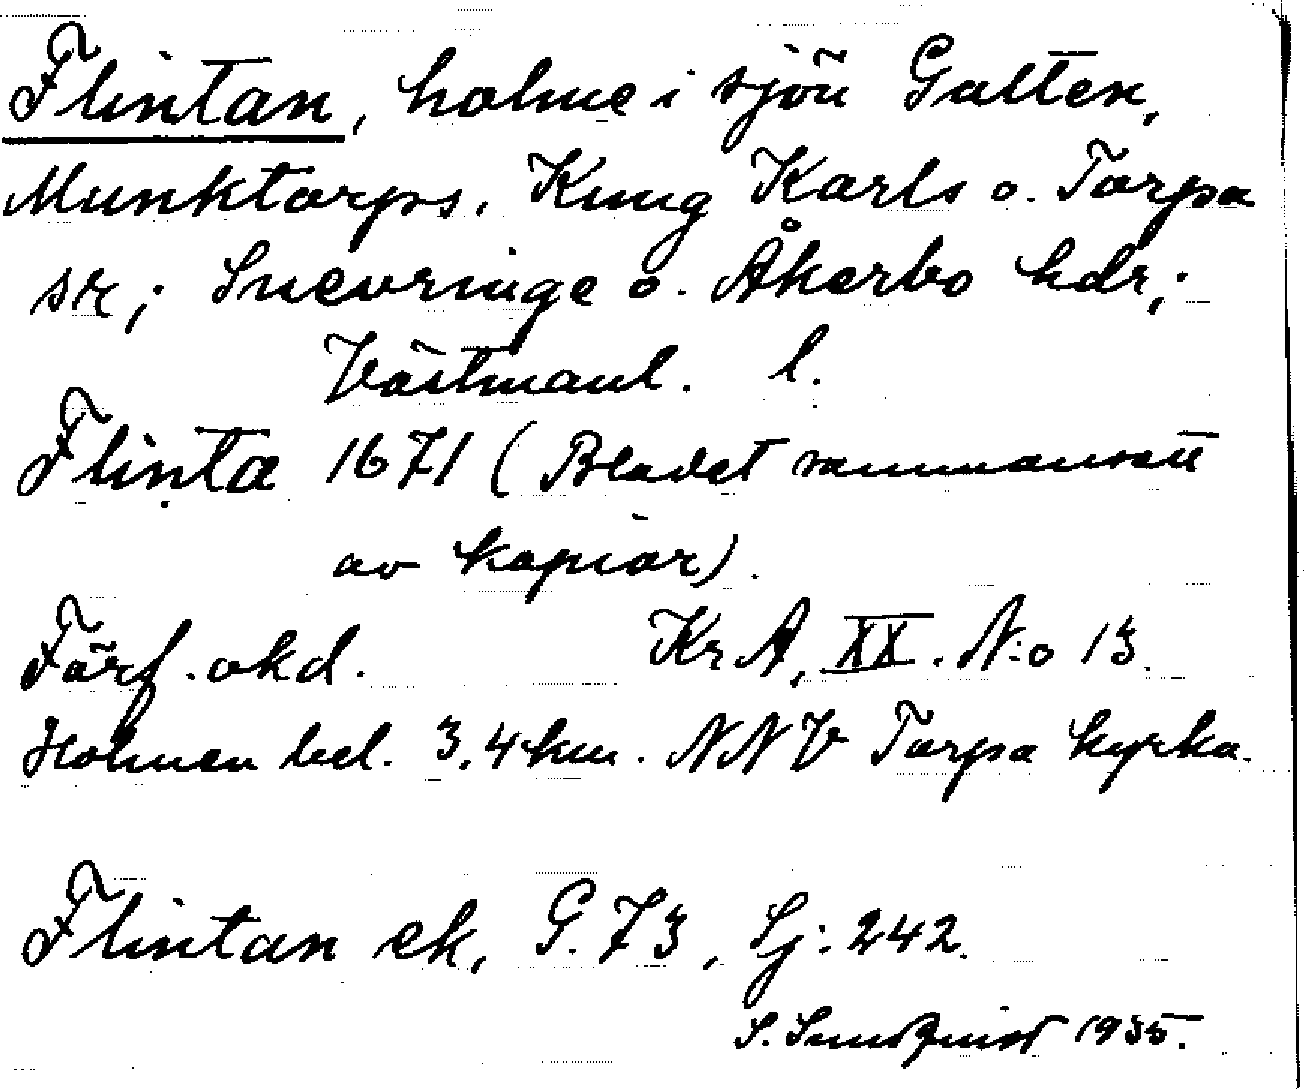 Flintan, holme i sjön Galten,
Munktorps, Kung Karls o. Torpa
sr; Snevringe o. Åkerbo hdr;
Västmanl. l.
Flinta 1671 (Bladet sammansatt
av kopior).
Förf. okd. KrA, XX. N:o 13.
Holmen bel. 3,4 km. NNV Torpa kyrka.
Flintan ek, G. 73, Sj: 242.
S. Sundquist 1935.